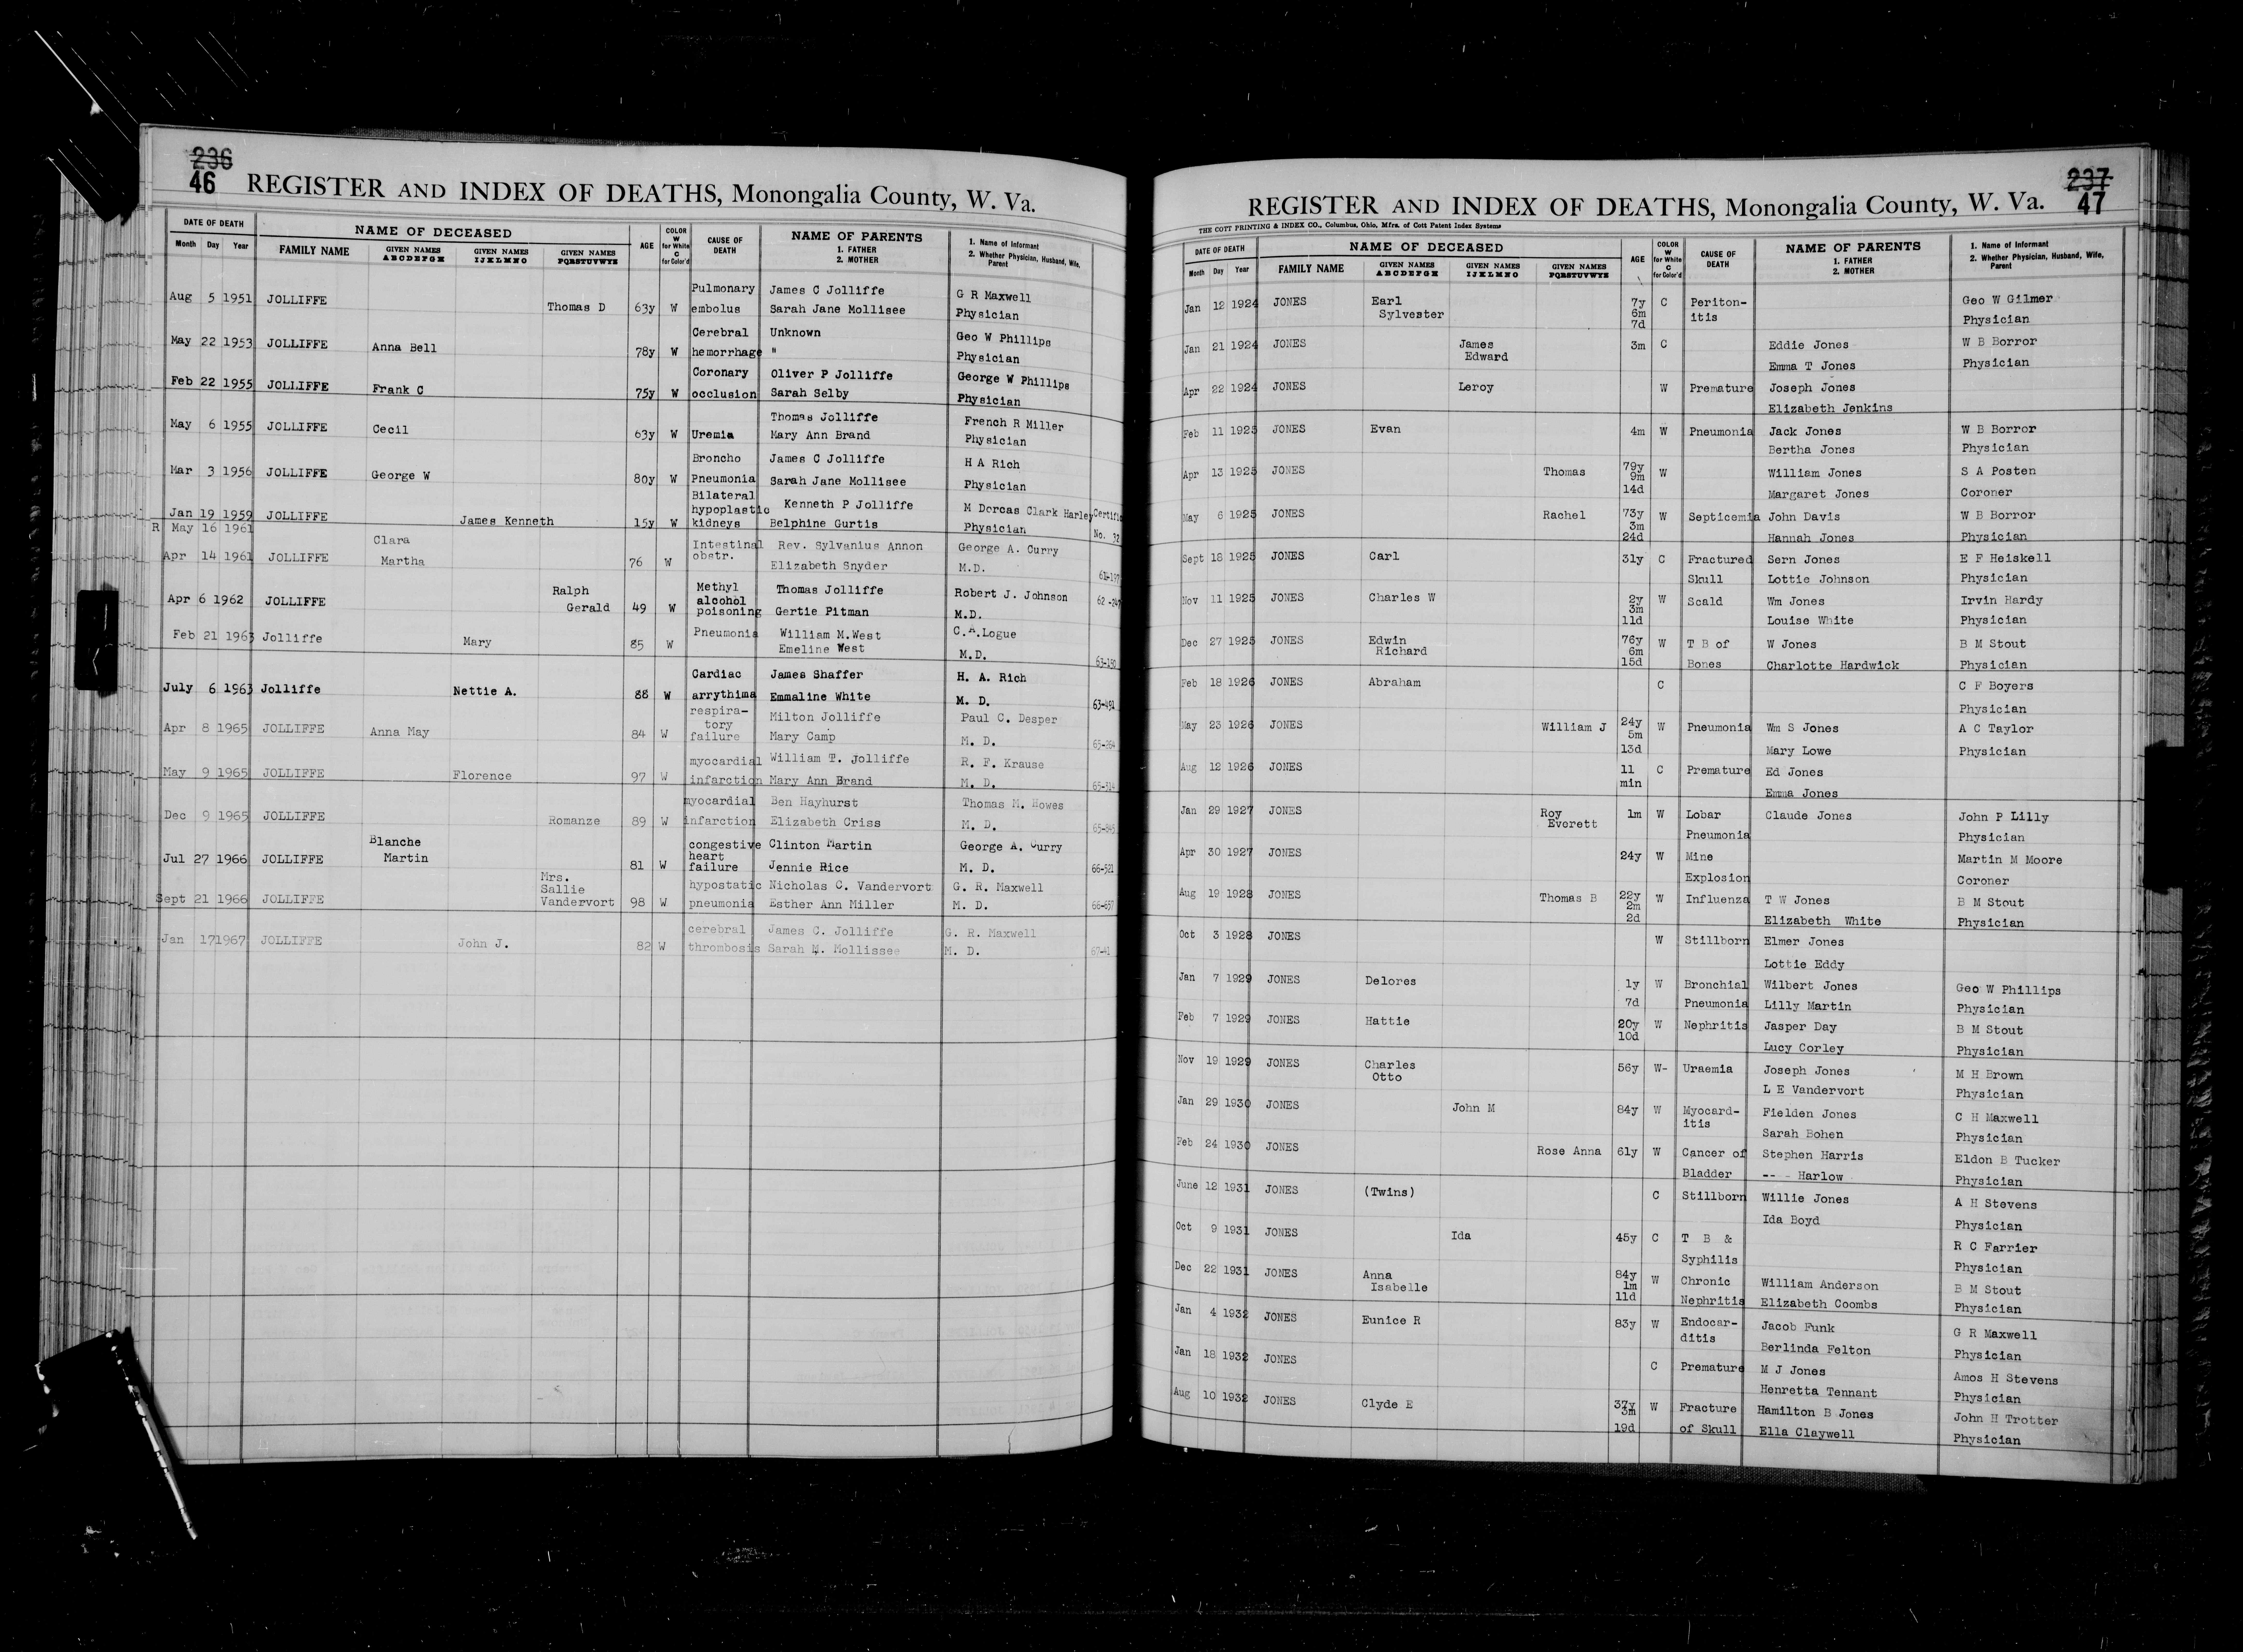 236
46
REGISTER AND INDEX OF DEATHS, Monongalia County, W. Va.
DATE OF DEATH
Month Day Year
NAME OF DECEASED
FAMILY NAME
GIVEN NAMES ABCDEFGH
GIVEN NAMES IJKLMNO
GIVEN NAMES PQRSTUVWYZ
AGE
COLOR W for White C for Color'd
CAUSE OF DEATH
NAME OF PARENTS
1. FATHER
2. MOTHER
1. Name of Informant
2. Whether Physician, Husband, Wife, Parent
Aug 5 1951 JOLLIFFE Thomas D 63y W Pulmonary embolus James C Jolliffe G R Maxwell
Sarah Jane Mollisee Physician
May 22 1953 JOLLIFFE Anna Bell 78y W Cerebral hemorrhage Unknown Geo W Phillips
" Physician
Feb 22 1955 JOLLIFFE Frank C 75y W Coronary occlusion Oliver P Jolliffe George W Phillips
Sarah Selby Physician
May 6 1955 JOLLIFFE Cecil 63y W Uremia Thomas Jolliffe French R Miller
Mary Ann Brand Physician
Mar 3 1956 JOLLIFFE George W 80y W Broncho Pneumonia James C Jolliffe H A Rich
Sarah Jane Mollisee Physician
Jan 19 1959 JOLLIFFE James Kenneth 15y W Bilateral hypoplastic kidneys Kenneth P Jolliffe M Dorcas Clark Harley
Belphine Gurtis Physician No. 32
R May 16 1961
Apr 14 1961 JOLLIFFE Clara Martha 76 W Intestinal obstr. Rev. Sylvanius Annon George A. Curry
Elizabeth Snyder M.D. 61-197
Apr 6 1962 JOLLIFFE Ralph Gerald 49 W Methyl alcohol poisoning Thomas Jolliffe Robert J. Johnson
Gertie Pitman M.D.
Feb 21 1963 Jolliffe Mary 85 W Pneumonia William M.West C.A.Logue
Emeline West M.D.
July 6 1963 Jolliffe Nettie A. 88 W Cardiac arrythima James Shaffer H. A. Rich
Emmaline White M. D. 63-491
Apr 8 1965 JOLLIFFE Anna May 84 W respiratory failure Milton Jolliffe Paul C. Desper
Mary Camp M. D. 65-264
May 9 1965 JOLLIFFE Florence 97 W myocardial infarction William T. Jolliffe R. F. Krause
Mary Ann Brand M. D. 65-314
Dec 9 1965 JOLLIFFE Romanze 89 W myocardial infarction Ben Hayhurst Thomas M. Howes
Elizabeth Criss M. D. 65-845
Jul 27 1966 JOLLIFFE Blanche Martin 81 W congestive heart failure Clinton Martin George A. Curry
Jennie Rice M. D. 66-521
Sept 21 1966 JOLLIFFE Mrs. Sallie Vandervort 98 W hypostatic pneumonia Nicholas C. Vandervort G. R. Maxwell
Esther Ann Miller M. D. 66-657
Jan 17 1967 JOLLIFFE John J. 82 W cerebral thrombosis James C. Jolliffe G. R. Maxwell
Sarah M. Mollissee M. D. 67-41
237
47
REGISTER AND INDEX OF DEATHS, Monongalia County, W. Va.
THE COTT PRINTING & INDEX CO., Columbus, Ohio, Mfrs. of Cott Patent Index Systems
DATE OF DEATH
Month Day Year
NAME OF DECEASED
FAMILY NAME
GIVEN NAMES ABCDEFGH
GIVEN NAMES IJKLMNO
GIVEN NAMES PQRSTUVWYZ
AGE
COLOR W for White C for Color'd
CAUSE OF DEATH
NAME OF PARENTS
1. FATHER
2. MOTHER
1. Name of Informant
2. Whether Physician, Husband, Wife, Parent
Jan 12 1924 JONES Earl Sylvester 7y 6m 7d C Periton-itis Geo W Gilmer
Physician
Jan 21 1924 JONES James Edward 3m C Eddie Jones W B Borror
Emma T Jones Physician
Apr 22 1924 JONES Leroy W Premature Joseph Jones
Elizabeth Jenkins
Feb 11 1925 JONES Evan 4m W Pneumonia Jack Jones W B Borror
Bertha Jones Physician
Apr 13 1925 JONES Thomas 79y 9m 14d W William Jones S A Posten
Margaret Jones Coroner
May 6 1925 JONES Rachel 73y 3m 24d W Septicemia John Davis W B Borror
Hannah Jones Physician
Sept 18 1925 JONES Carl 31y C Fractured Skull Sern Jones E F Heiskell
Lottie Johnson Physician
Nov 11 1925 JONES Charles W 2y 3m 11d W Scald Wm Jones Irvin Hardy
Louise White Physician
Dec 27 1925 JONES Edwin Richard 76y 6m 15d W T B of Bones W Jones B M Stout
Charlotte Hardwick Physician
Feb 18 1926 JONES Abraham C C F Boyers
Physician
May 23 1926 JONES William J 24y 5m 13d W Pneumonia Wm S Jones A C Taylor
Mary Lowe Physician
Aug 12 1926 JONES 11 min C Premature Ed Jones
Emma Jones
Jan 29 1927 JONES Roy Everett 1m W Lobar Pneumonia Claude Jones John P Lilly
Physician
Apr 30 1927 JONES 24y W Mine Explosion Martin M Moore
Coroner
Aug 19 1928 JONES Thomas B 22y 2m 2d W Influenza T W Jones B M Stout
Elizabeth White Physician
Oct 3 1928 JONES W Stillborn Elmer Jones
Lottie Eddy
Jan 7 1929 JONES Delores 1y 7d W Bronchial Pneumonia Wilbert Jones Geo W Phillips
Lilly Martin Physician
Feb 7 1929 JONES Hattie 20y 10d W Nephritis Jasper Day B M Stout
Lucy Corley Physician
Nov 19 1929 JONES Charles Otto 56y W- Uraemia Joseph Jones M H Brown
L E Vandervort Physician
Jan 29 1930 JONES John M 84y W Myocard-itis Fielden Jones C H Maxwell
Sarah Bohen Physician
Feb 24 1930 JONES Rose Anna 61y W Cancer of Bladder Stephen Harris Eldon B Tucker
-- - Harlow Physician
June 12 1931 JONES (Twins) C Stillborn Willie Jones A H Stevens
Ida Boyd Physician
Oct 9 1931 JONES Ida 45y C T B & Syphilis R C Farrier
Physician
Dec 22 1931 JONES Anna Isabelle 84y 1m 11d W Chronic Nephritis William Anderson B M Stout
Elizabeth Coombs Physician
Jan 4 1932 JONES Eunice R 83y W Endocar-ditis Jacob Funk G R Maxwell
Berlinda Felton Physician
Jan 18 1932 JONES C Premature M J Jones Amos H Stevens
Henretta Tennant Physician
Aug 10 1932 JONES Clyde E 37y 3m 19d W Fracture of Skull Hamilton B Jones John H Trotter
Ella Claywell Physician